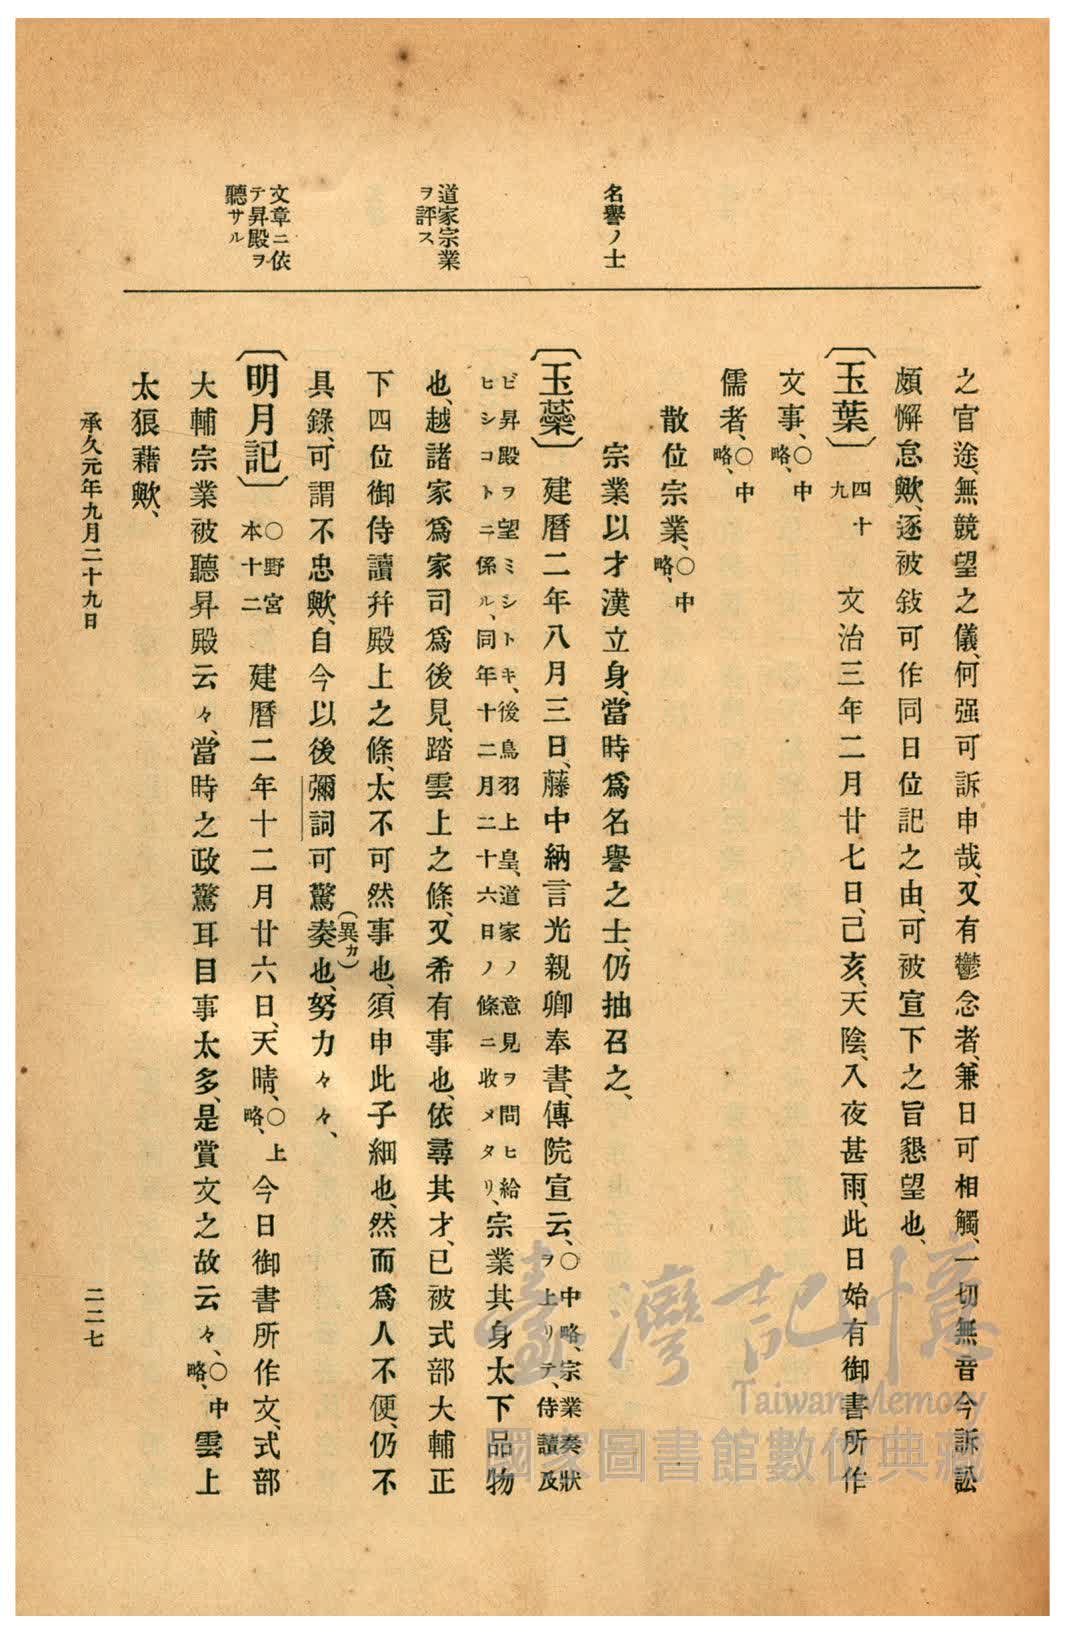 名譽ノ士
道家宗業
ヲ評ス
文章ニ依
テ昇殿ヲ
聽サル
之官途、無競望之儀、何强可訴申哉、又有鬱念者、兼日可相觸、一切無音今訴訟
頗懈怠歟、逐被敍可作同日位記之由、可被宣下之旨懇望也、
〔玉葉〕四十九 文治三年二月廿七日、己亥、天陰、入夜甚雨、此日始有御書所作
文事、○中略、
儒者、○中略、
散位宗業、○中略、
宗業以才漢立身、當時爲名譽之士、仍抽召之、
〔玉蘂〕建曆二年八月三日、藤中納言光親卿奉書、傳院宣云、○中略、宗業奏狀ヲ上リテ、侍讀及
ビ昇殿ヲ望ミシトキ、後鳥羽上皇、道家ノ意見ヲ問ヒ給ヒシコトニ係ル、同年十二月二十六日ノ條ニ收メタリ、宗業其身太下品物
也、越諸家爲家司爲後見、踏雲上之條、又希有事也、依尋其才、已被式部大輔正
下四位御侍讀幷殿上之條、太不可然事也、須申此子細也、然而爲人不便、仍不
具錄、可謂不忠歟、自今以後彌詞可驚奏(異カ)也、努力々々、
〔明月記〕○野宮本十二 建曆二年十二月廿六日、天晴、○上略、今日御書所作文、式部
大輔宗業被聽昇殿云々、當時之政驚耳目事太多、是賞文之故云々、○中略、雲上
太狼藉歟、
承久元年九月二十九日
二二七
臺灣記憶
Taiwan Memory
國家圖書館數位典藏